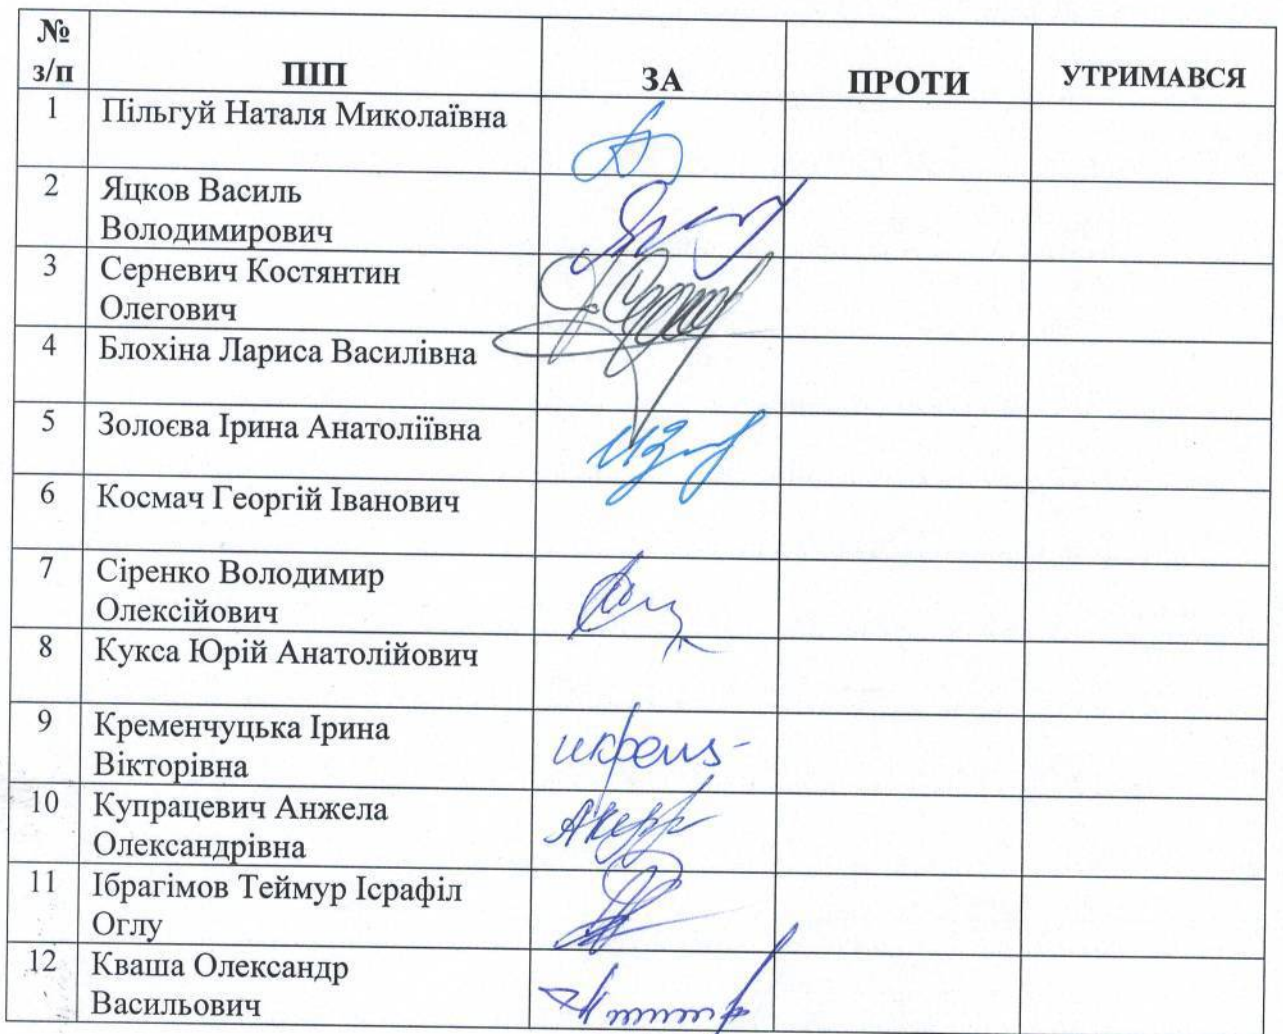 №
з/п ПІП ЗА ПРОТИ УТРИМАВСЯ
1 Пільгуй Наталя Миколаївна
2 Яцков Василь
Володимирович
3 Серневич Костянтин
Олегович
4 Блохіна Лариса Василівна
5 Золоєва Ірина Анатоліївна
6 Космач Георгій Іванович
7 Сіренко Володимир
Олексійович
8 Кукса Юрій Анатолійович
9 Кременчуцька Ірина
Вікторівна
10 Купрацевич Анжела
Олександрівна
11 Ібрагімов Теймур Ісрафіл
Оглу
12 Кваша Олександр
Васильович